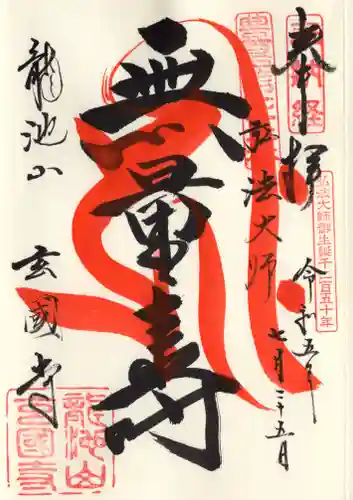 奉拝
令和五年
七月三十五月
弘法大師御生誕千二百五十年
弘法大師
無量寿
龍池山
玄國寺
龍池山
玄國寺